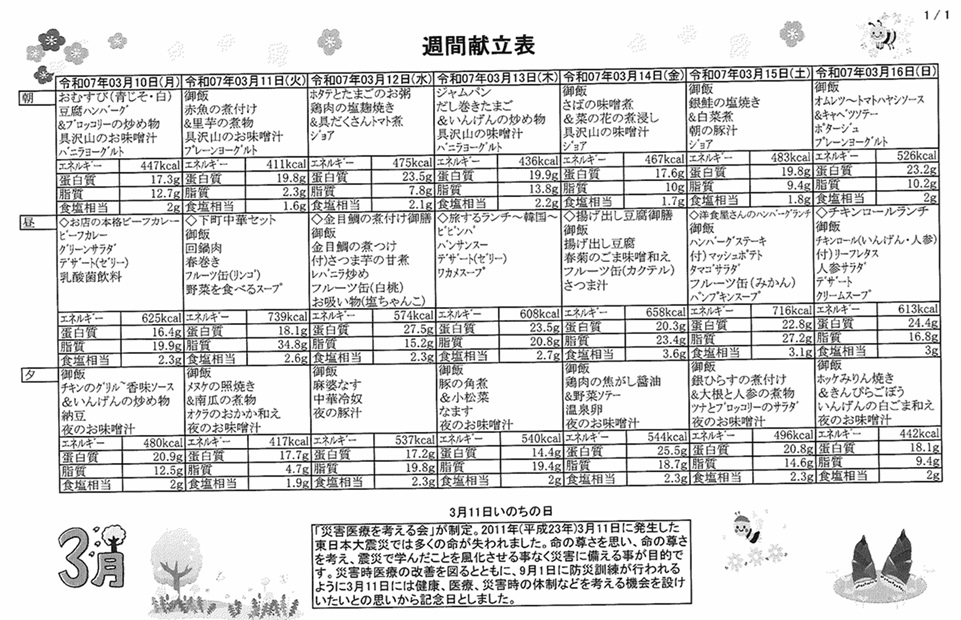 1/1
週間献立表
令和07年03月10日(月) 令和07年03月11日(火) 令和07年03月12日(水) 令和07年03月13日(木) 令和07年03月14日(金) 令和07年03月15日(土) 令和07年03月16日(日)
朝
おむすび(青じそ・白) 御飯 ホタテとたまごのお粥 ジャムパン 御飯 御飯 御飯
豆腐ハンバーグ 赤魚の煮付け 鶏肉の塩麹焼き だし巻きたまご さばの味噌煮 銀鮭の塩焼き オムレツ～トマトハヤシソース
&ブロッコリーの炒め物 &里芋の煮物 &具だくさんトマト煮 &いんげんの炒め物 &菜の花の煮浸し &白菜煮 &キャベツソテー
具沢山のお味噌汁 具沢山のお味噌汁 ジョア 具沢山のお味噌汁 具沢山のお味噌汁 朝の豚汁 ポタージュ
バニラヨーグルト プレーンヨーグルト バニラヨーグルト ジョア ジョア プレーンヨーグルト
エネルギー 447kcal エネルギー 411kcal エネルギー 475kcal エネルギー 436kcal エネルギー 467kcal エネルギー 483kcal エネルギー 526kcal
蛋白質 17.3g 蛋白質 19.8g 蛋白質 23.5g 蛋白質 19.9g 蛋白質 17.6g 蛋白質 19.8g 蛋白質 23.2g
脂質 12.7g 脂質 2.3g 脂質 7.8g 脂質 13.8g 脂質 10g 脂質 9.4g 脂質 10.2g
食塩相当 2g 食塩相当 1.6g 食塩相当 2.1g 食塩相当 2.2g 食塩相当 1.7g 食塩相当 1.8g 食塩相当 2g
昼
◇お店の本格ビーフカレー ◇下町中華セット ◇金目鯛の煮付け御膳 ◇旅するランチ～韓国～ ◇揚げ出し豆腐御膳 ◇洋食屋さんのハンバーグランチ ◇チキンロールランチ
ビーフカレー 御飯 御飯 ビビンバ 御飯 御飯 御飯
グリーンサラダ 回鍋肉 金目鯛の煮つけ バンサンスー 揚げ出し豆腐 ハンバーグステーキ チキンロール(いんげん・人参)
デザート(ゼリー) 春巻き 付)さつま芋の甘煮 デザート(ゼリー) 春菊のごま味噌和え 付)マッシュポテト 付)リーフレタス
乳酸菌飲料 フルーツ缶(リンゴ) レバニラ炒め ワカメスープ フルーツ缶(カクテル) タマゴサラダ 人参サラダ
野菜を食べるスープ フルーツ缶(白桃) さつま汁 フルーツ缶(みかん) デザート
お吸い物(塩ちゃんこ) パンプキンスープ クリームスープ
エネルギー 625kcal エネルギー 739kcal エネルギー 574kcal エネルギー 608kcal エネルギー 658kcal エネルギー 716kcal エネルギー 613kcal
蛋白質 16.4g 蛋白質 18.1g 蛋白質 27.5g 蛋白質 23.5g 蛋白質 20.3g 蛋白質 22.8g 蛋白質 24.4g
脂質 19.9g 脂質 34.8g 脂質 15.2g 脂質 20.8g 脂質 23.4g 脂質 27.2g 脂質 16.8g
食塩相当 2.3g 食塩相当 2.6g 食塩相当 2.3g 食塩相当 2.7g 食塩相当 3.6g 食塩相当 3.1g 食塩相当 3g
夕
御飯 御飯 御飯 御飯 御飯 御飯 御飯
チキンのグリル~香味ソース メヌケの照焼き 麻婆なす 豚の角煮 鶏肉の焦がし醤油 銀ひらすの煮付け ホッケみりん焼き
&いんげんの炒め物 &南瓜の煮物 中華冷奴 &小松菜 &野菜ソテー &大根と人参の煮物 &きんぴらごぼう
納豆 オクラのおかか和え 夜の豚汁 なます 温泉卵 ツナとブロッコリーのサラダ いんげんの白ごま和え
夜のお味噌汁 夜のお味噌汁 夜のお味噌汁 夜のお味噌汁 夜のお味噌汁 夜のお味噌汁
エネルギー 480kcal エネルギー 417kcal エネルギー 537kcal エネルギー 540kcal エネルギー 544kcal エネルギー 496kcal エネルギー 442kcal
蛋白質 20.9g 蛋白質 17.7g 蛋白質 17.2g 蛋白質 14.4g 蛋白質 25.5g 蛋白質 20.8g 蛋白質 18.1g
脂質 12.5g 脂質 4.7g 脂質 19.8g 脂質 19.4g 脂質 18.7g 脂質 14.6g 脂質 9.4g
食塩相当 2g 食塩相当 1.9g 食塩相当 2.3g 食塩相当 2g 食塩相当 2.3g 食塩相当 2.3g 食塩相当 2g
3月11日いのちの日
「災害医療を考える会」が制定。2011年(平成23年)3月11日に発生した
東日本大震災では多くの命が失われました。命の尊さを思い、命の尊さ
を考え、震災で学んだことを風化させる事なく災害に備える事が目的で
す。災害時医療の改善を図るとともに、9月1日に防災訓練が行われる
ように3月11日には健康、医療、災害時の体制などを考える機会を設け
たいたいとの思いから記念日としました。
3月